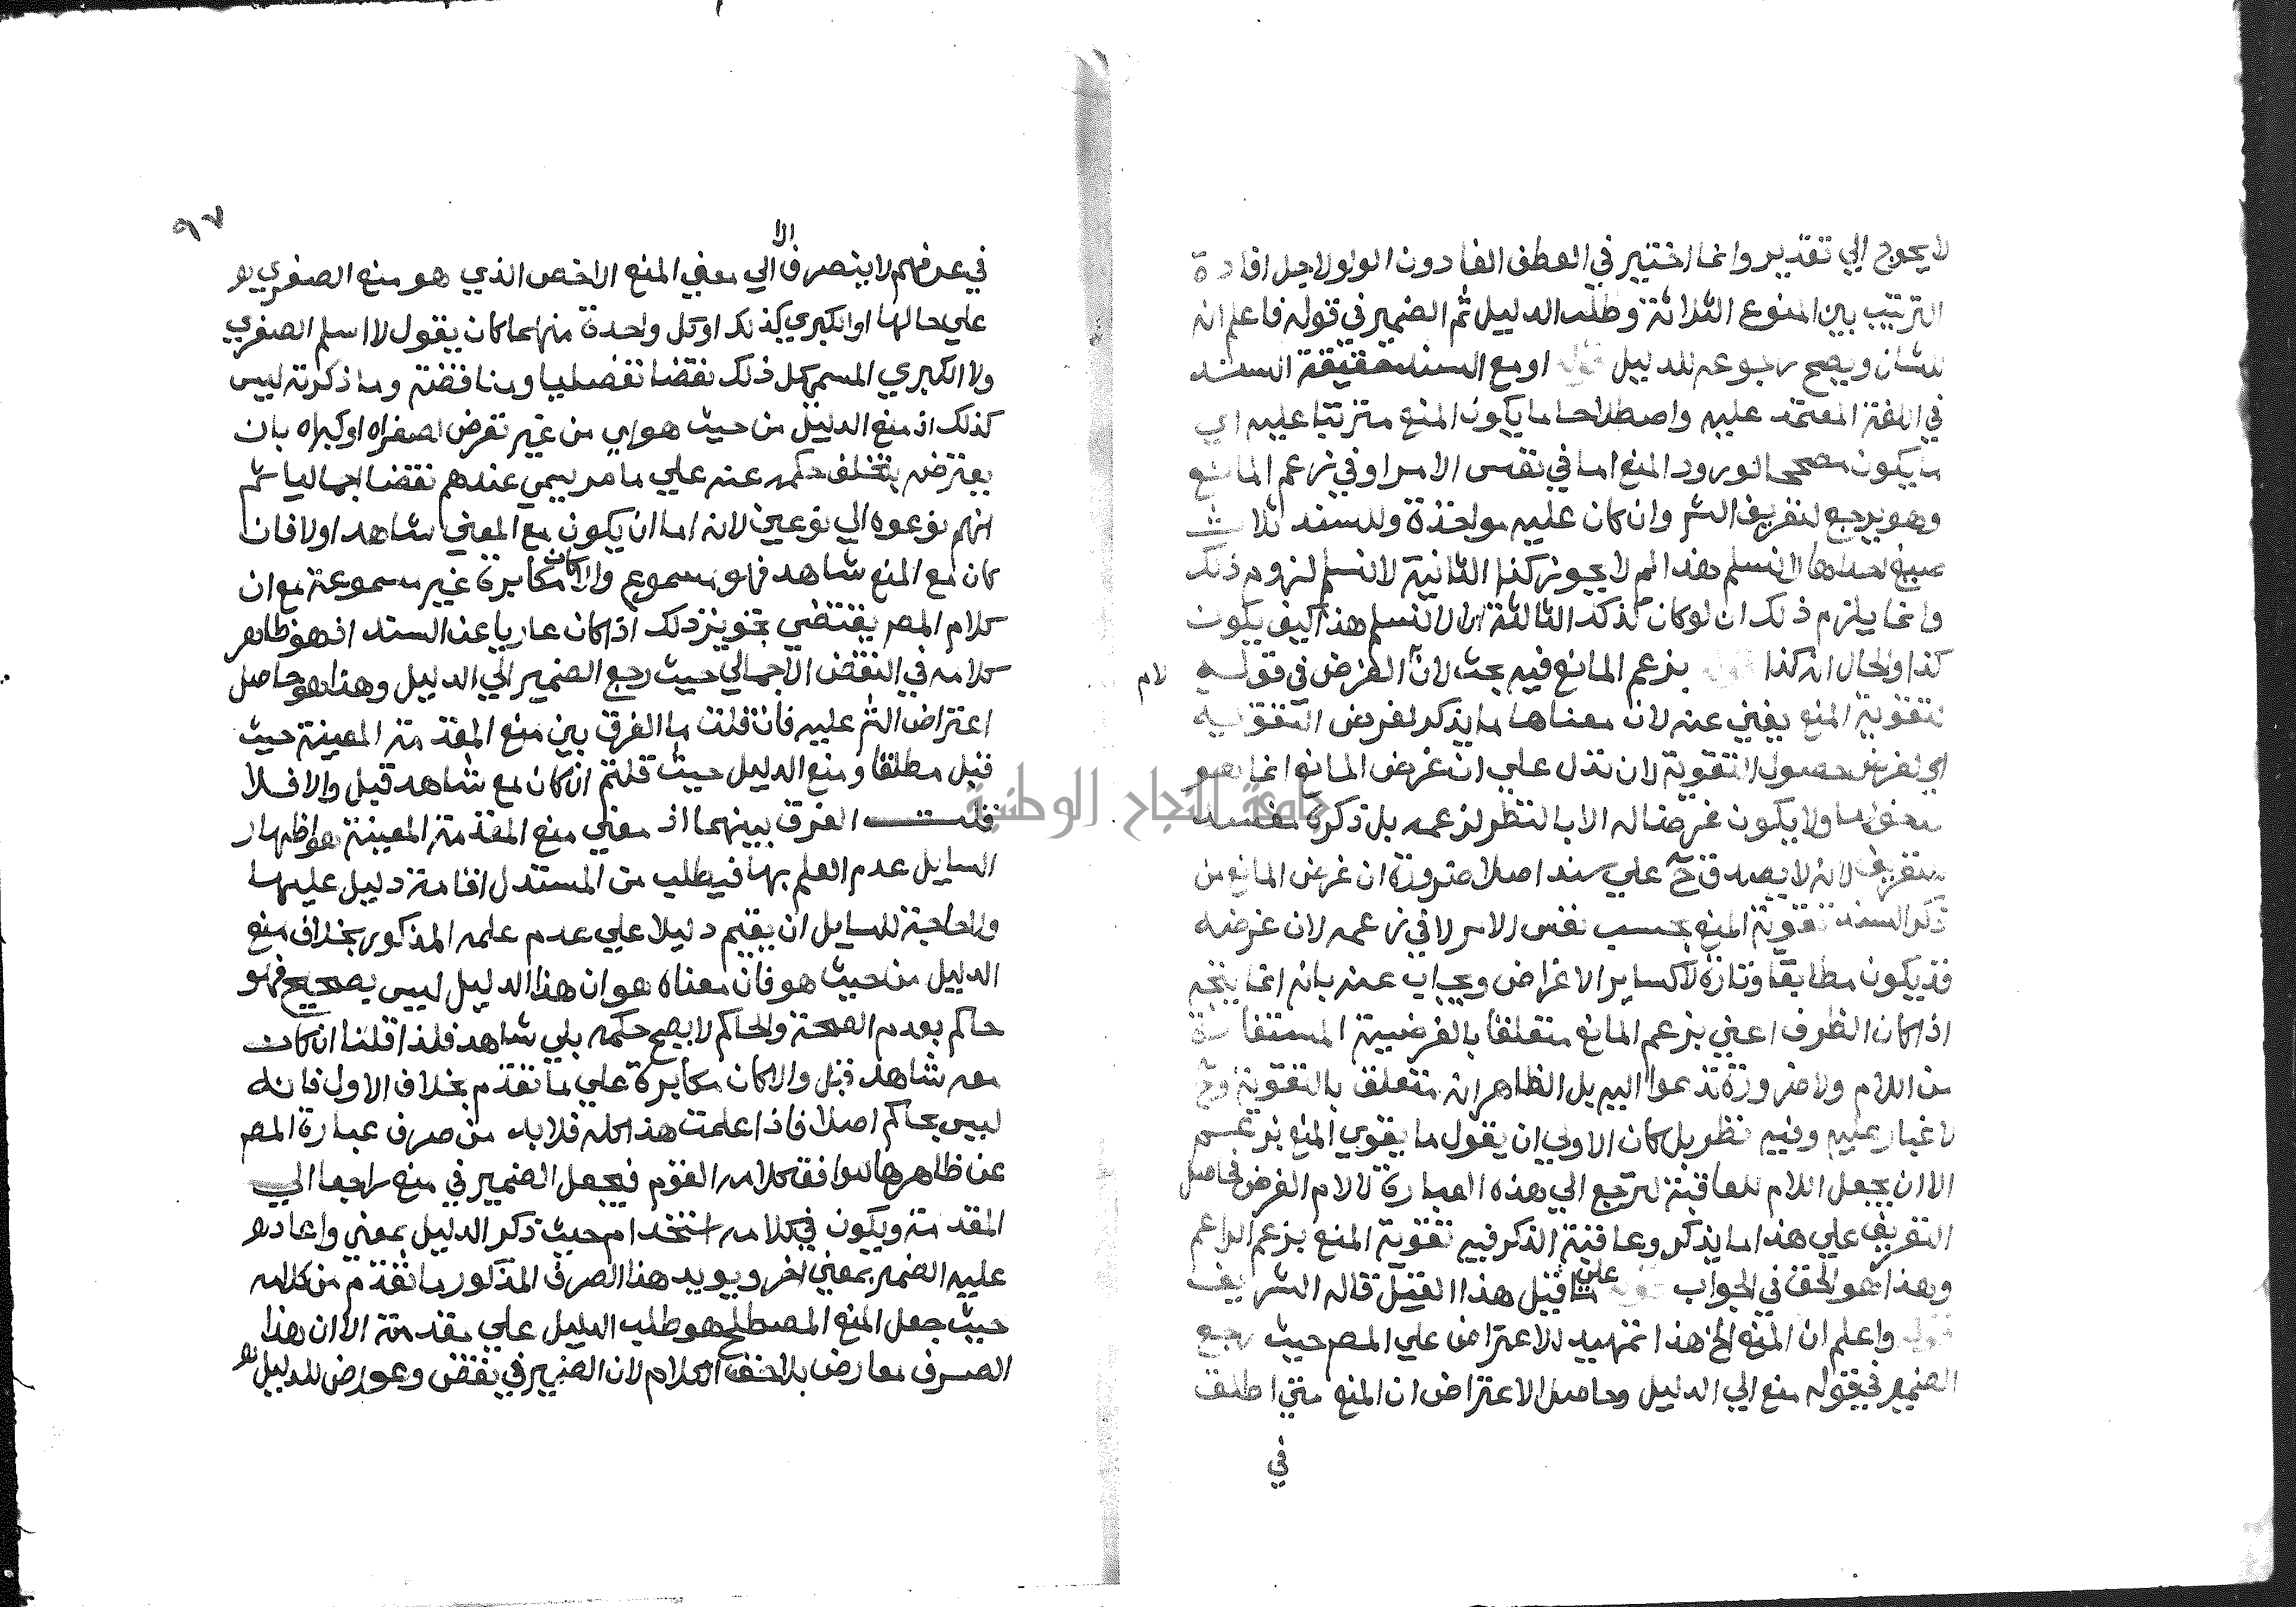 لا يحوج الي تقدير وانما اختير في العطف الفا دون الواو لاجل افادة
الترتيب بين المنوع الثلاثة وطلب الدليل ثم الضمير في قوله فاعلم انه
للشان ويصح رجوعه للدليل قوله او مع السند حقيقة السند
في اللغة المعتمد عليه واصطلاحا ما يكون المنع مترتبا عليه اي
ما يكون مصححا لورود المنع اما في نفس الامر او في زعم المانع
وهو يرجع لتعريف الش وان كان عليه مواخذة وللسند ثلاث
صيغ احداها لا نسلم هذا لم لا يجوز كذا الثانية لا نسلم لزوم ذلك
وانما يلزم ذلك ان لو كان كذلك الثالثة ان لا نسلم هذا كيف يكون
كذا والحال انه كذا قوله بزعم المانع فيه بحث لان الغرض في قوله
لام
لتقوية المنع يغني عنه لان معناها ما يذكر لغرض التقوية
اي لغرض حصول التقوية لان تدل علي ان غرض المانع انما هو
حصولها ولا يكون غرضا له الا بالنظر لزعمه بل ذكره مفسد
للتعريف لانه لا يصدق ح علي سند اصلا ضرورة ان غرض المانع من
ذكر السند تقوية المنع بحسب نفس الامر لا في زعمه لان غرضه
قد يكون مطابقا وتارة لا كساير الاغراض ويجاب عنه بانه انما يتجه
اذا كان الظرف اعني بزعم المانع متعلقا بالغرضية المستفادة
من اللام ولا ضرورة تدعوا اليه بل الظاهر انه متعلق بالتقوية وح
لا غبار عليه وفيه نظر بل كان الاولي ان يقول ما يقوي المنع بزعمه
الا ان يجعل اللام للعاقبة لترجع الي هذه العبارة لا لام الغرض فحاصل
التعريف علي هذا ما يذكر وعاقبة الذكر فيه تقوية المنع بزعم الزاعم
وهذا هو الحق في الجواب قوله علي ما قيل هذا القيل قاله الشريف
قوله واعلم ان المنع الخ هذا تمهيد للاعتراض علي المصر حيث رجع
الضمير في قوله منع الي الدليل وحاصل الاعتراض ان المنع متي اطلق
في
٩٧
الا
في عرفهم لا ينصرف الي معني المنع الاخص الذي هو منع الصغري
علي حالها او الكبري كذلك او كل واحدة منهما كان يقول لا اسلم الصغري
ولا الكبري المسمي كل ذلك نقضا تفصيليا ومناقضة وما ذكرته ليس
كذلك اذ منع الدليل من حيث هو اي من غير تعرض لصغراه او كبراه بان
يعترض بتخلف حكمه عنه علي ما مر يسمي عندهم نقضا اجماليا ثم
انهم نوعوه الي نوعين لانه اما ان يكون مع المعني شاهد او لا فان
كان مع المنع شاهد فهو مسموع والا كان مكابرة غير مسموعة مع ان
كلام المصر يقتضي تجويز ذلك اذا كان عاريا عن السند اذ هو ظاهر
كلامه في النقض الاجمالي حيث رجع الضمير الي الدليل وهذا هو حاصل
اعتراض الش عليه فان قلت ما الفرق بين منع المقدمة المعينة حيث
قبل مطلقا ومنع الدليل حيث قلتم ان كان مع شاهد قبل والا فلا
قلت الفرق بينهما اذ معني منع المقدمة المعينة هو اظهار
السايل عدم العلم بها فيطلب من المستدل اقامة دليل عليها
ولا حاجة للسايل ان يقيم دليلا علي عدم علمه المذكور بخلاف منع
الدليل من حيث هو فان معناه هو ان هذا الدليل ليس بصحيح فهو
حاكم بعدم الصحة والحاكم لا يصح حكمه بلي شاهد فلذا قلنا ان كان
معه شاهد قبل والا كان مكابرة علي ما تقدم بخلاف الاول فانه
ليس بحاكم اصلا فاذا علمت هذا كله فلا بد من صرف عبارة المصر
عن ظاهرها لموافقة كلامه القوم فيجعل الضمير في منع راجعا الي
المقدمة ويكون في كلامه استخدام حيث ذكر الدليل بمعني واعاد
عليه الضمير بمعني اخر ويويد هذا الصرف المذكور ما تقدم من كلامه
حيث جعل المنع المصطلح هو طلب الدليل علي مقدمته الا ان هذا
الصرف معارض بلا خفا الكلام لان الضمير في نقض وعورض للدليل